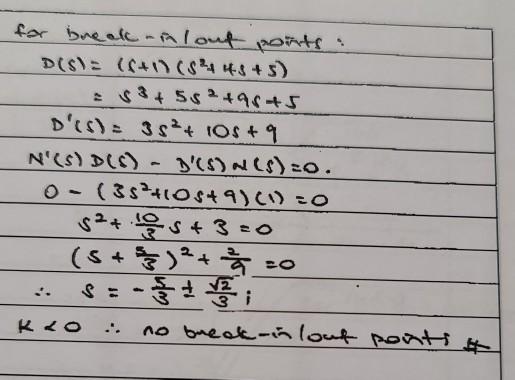 for break-in/out points :
D(s) = (s+1)(s²+4s+5)
= s³ + 5s² + 9s + 5
D'(s) = 3s² + 10s + 9
N'(s) D(s) - D'(s) N(s) = 0.
0 - (3s²+10s+9)(1) = 0
s² + 10/3 s + 3 = 0
(s + 5/3)² + 2/9 = 0
∴ s = -5/3 ± √2/3 i
K < 0 ∴ no break-in/out points #